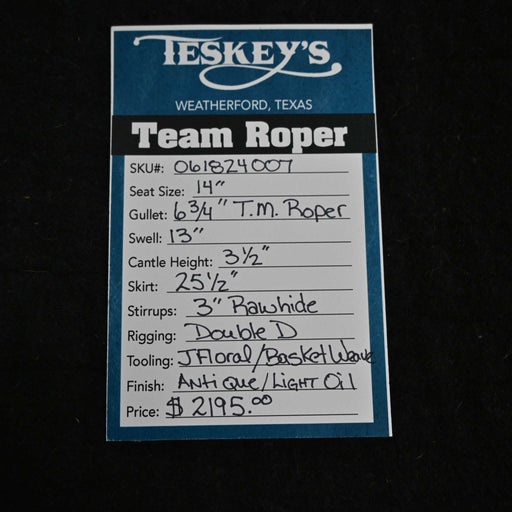 TESKEY'S
WEATHERFORD, TEXAS
Team Roper
SKU#: 061824007
Seat Size: 14"
Gullet: 6 3/4" T.M. Roper
Swell: 13"
Cantle Height: 3 1/2"
Skirt: 25 1/2"
Stirrups: 3" Rawhide
Rigging: Double D
Tooling: JFloral/BasketWeave
Finish: ANTiQue/LiGHT Oil
Price: $ 2195.00